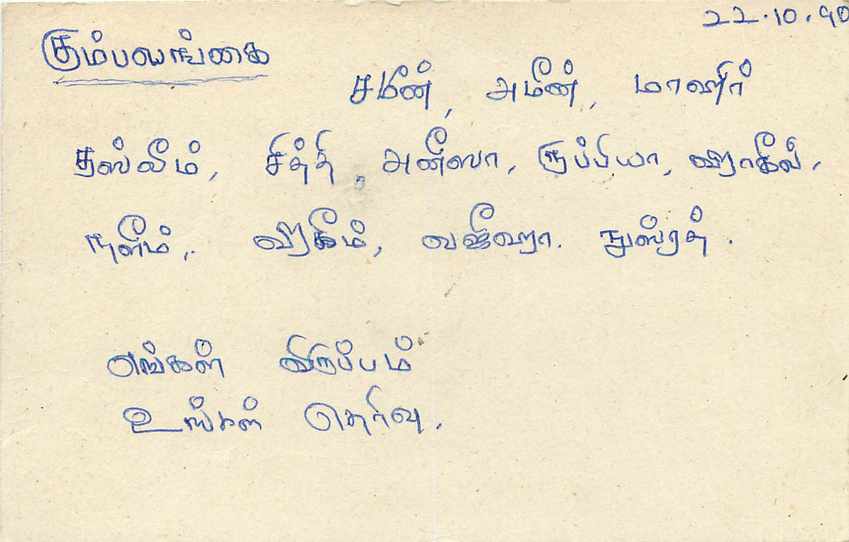 22.10.90
கும்பலங்கை
சமீன், அமீன், மாஹிர்
தஸ்லீம், சித்தி, அனீஸா, ருப்பியா, ஷாகீல்,
நளீம், ஹகீம், வஜீஹா. நுஸ்ரத்.
எங்கள் விருப்பம்
உங்கள் தெரிவு.